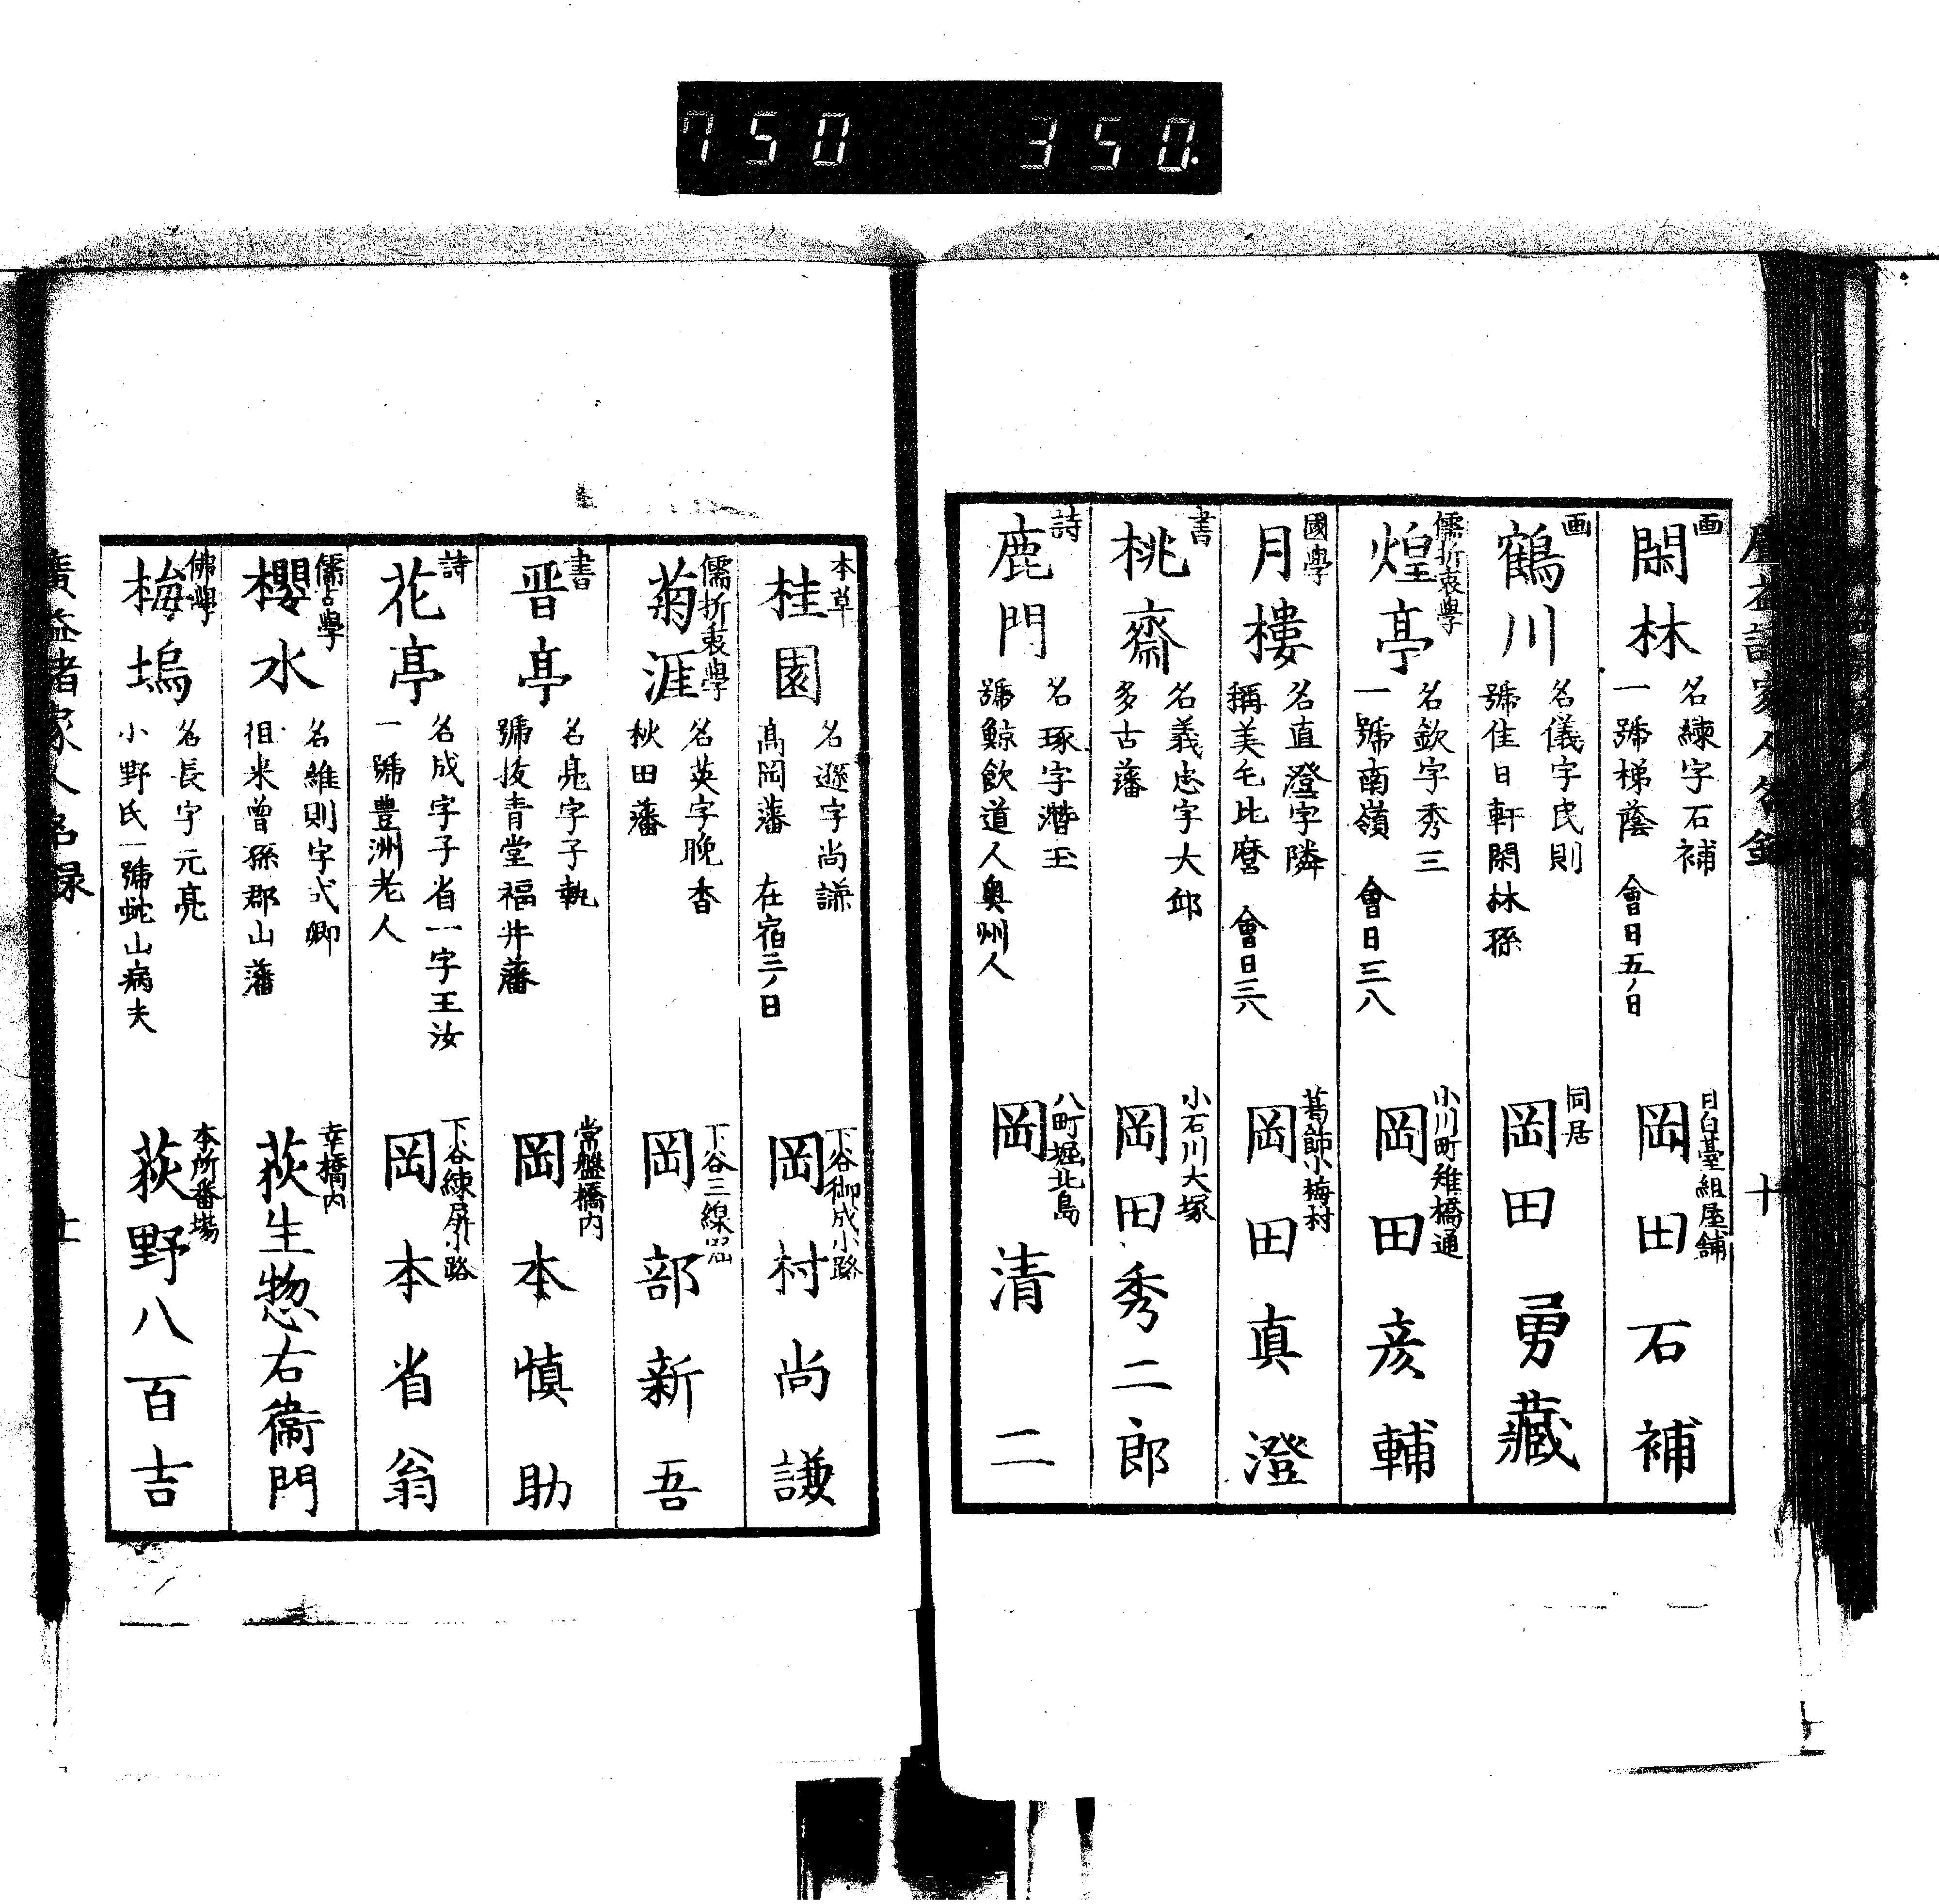 750 350.
廣益諸家人名錄
十
画
閑林
名練字石補
一號梯蔭 會日五ノ日
目白臺組屋舗
岡田石補
画
鶴川
名儀字民則
號佳日軒閑林孫
同居
岡田勇藏
儒折衷學
煌亭
名欽字秀三
一號南嶺 會日三八
小川町雉橋通
岡田彦輔
國學
月樓
名直澄字隣
稱美毛比麿 會日三六
葛飾小梅村
岡田真澄
書
桃齋
名義忠字大邱
多古藩
小石川大塚
岡田秀二郎
詩
鹿門
名琢字潛玉
號鯨飲道人奥州人
八町堀北島
岡清二
本草
桂園
名遜字尚謙
髙岡藩 在宿三ノ日
下谷御成小路
岡村尚謙
儒折衷學
菊涯
名英字晚香
秋田藩
下谷三線堀
岡部新吾
書
晋亭
名亮字子執
號拔青堂福井藩
常盤橋内
岡本慎助
詩
花亭
名成字子省一字王汝
一號豊洲老人
下谷練屏小路
岡本省翁
儒古學
櫻水
名維則字式卿
徂來曾孫郡山藩
幸橋内
荻生惣右衞門
佛學
梅塢
名長字元亮
小野氏一號蛇山病夫
本所番場
荻野八百吉
廣益諸家人名録